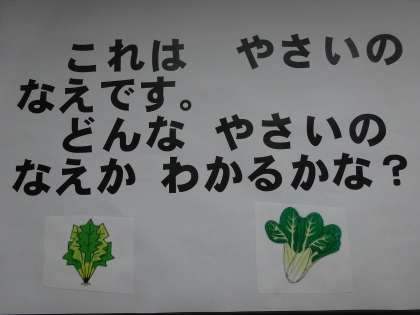 これは　やさいの
なえです。
どんな　やさいの
なえか　わかるかな？